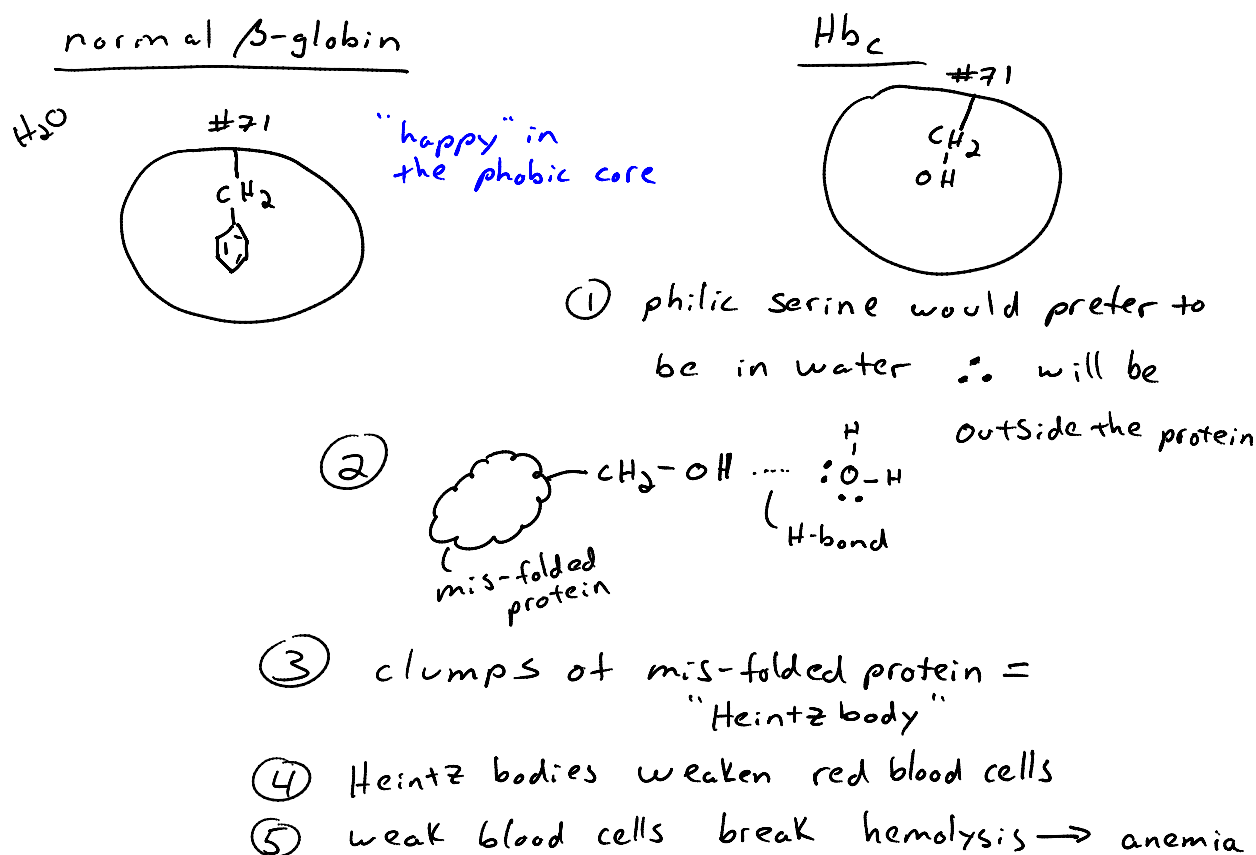 normal β-globin
H₂O
#71
CH₂
"happy" in
the phobic core
Hbc
#71
CH₂
OH
① philic serine would prefer to
be in water ∴ will be
outside the protein
② CH₂-OH ····· :O-H
H
H-bond
mis-folded
protein
③ clumps of mis-folded protein =
"Heintz body"
④ Heintz bodies weaken red blood cells
⑤ weak blood cells break hemolysis → anemia